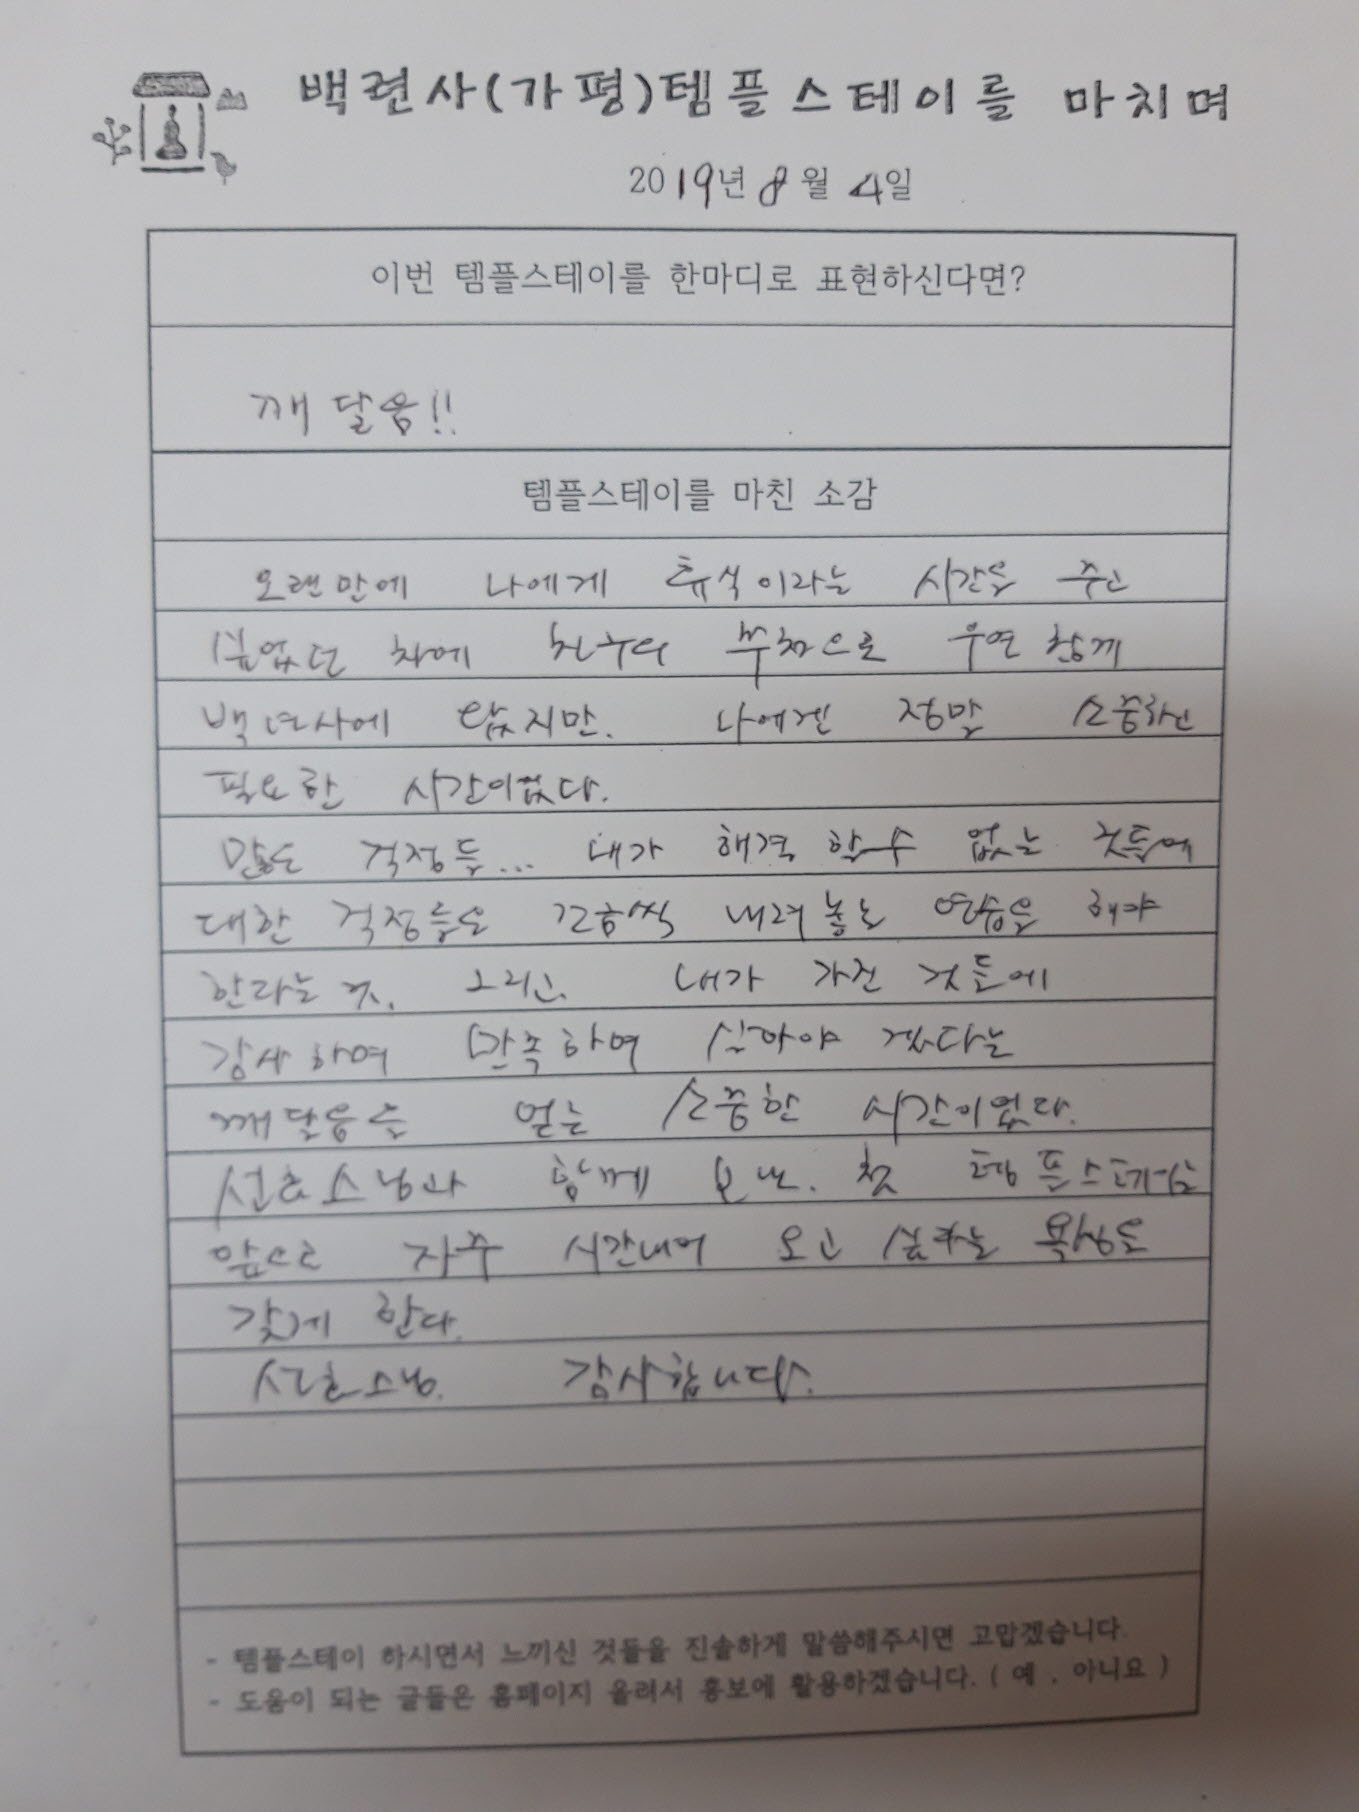 백련사(가평)템플스테이를 마치며
2019년 8월 4일
이번 템플스테이를 한마디로 표현하신다면?
깨달음!!
템플스테이를 마친 소감
오랜만에 나에게 휴식이라는 시간을 주고
싶었던 차에 친구의 부침으로 우연 참께
백년사에 왔지만. 나에겐 정말 소중하고
필요한 시간이었다.
많은 걱정들... 내가 해결 할수 없는 것들에
대한 걱정들을 조금씩 내려놓는 연습을 해야
한다는 것. 그리고. 내가 가진 것들에
감사하며 만족하며 살아야 겠다는
깨달음을 얻는 소중한 시간이었다.
선효스님과 함께 보낸. 첫 템플스테이는
앞으로 자주 시간내어 오고 싶다는 욕심도
갖게 한다.
선효스님. 감사합니다.
- 템플스테이 하시면서 느끼신 것들을 진솔하게 말씀해주시면 고맙겠습니다.
- 도움이 되는 글들은 홈페이지 올려서 홍보에 활용하겠습니다. ( 예 , 아니요 )